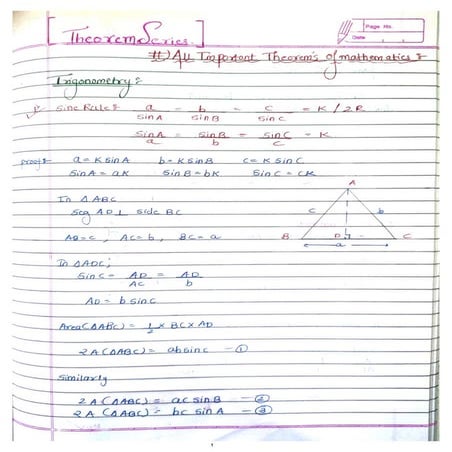 [Theorem Series.]
Page No.
Date
#) All Important Theorem's of mathematics :-
Trigonometry :-
Sine Rule :- a/sinA = b/sinB = c/sinC = K / 2R
sinA/a = sinB/b = sinC/c = K
Proof :- a = K sinA b = K sinB c = K sinC
sinA = aK sinB = bK sinC = cK
In △ABC
Seg AD ⊥ side BC
AB = c, AC = b, BC = a
A
c b
B D C
a
In △ADC;
sinC = AD/AC = AD/b
AD = b sinC
Area(△ABC) = 1/2 × BC × AD
2A(△ABC) = ab sinC - ①
Similarly
2A(△ABC) = ac sinB - ②
2A(△ABC) = bc sinA - ③